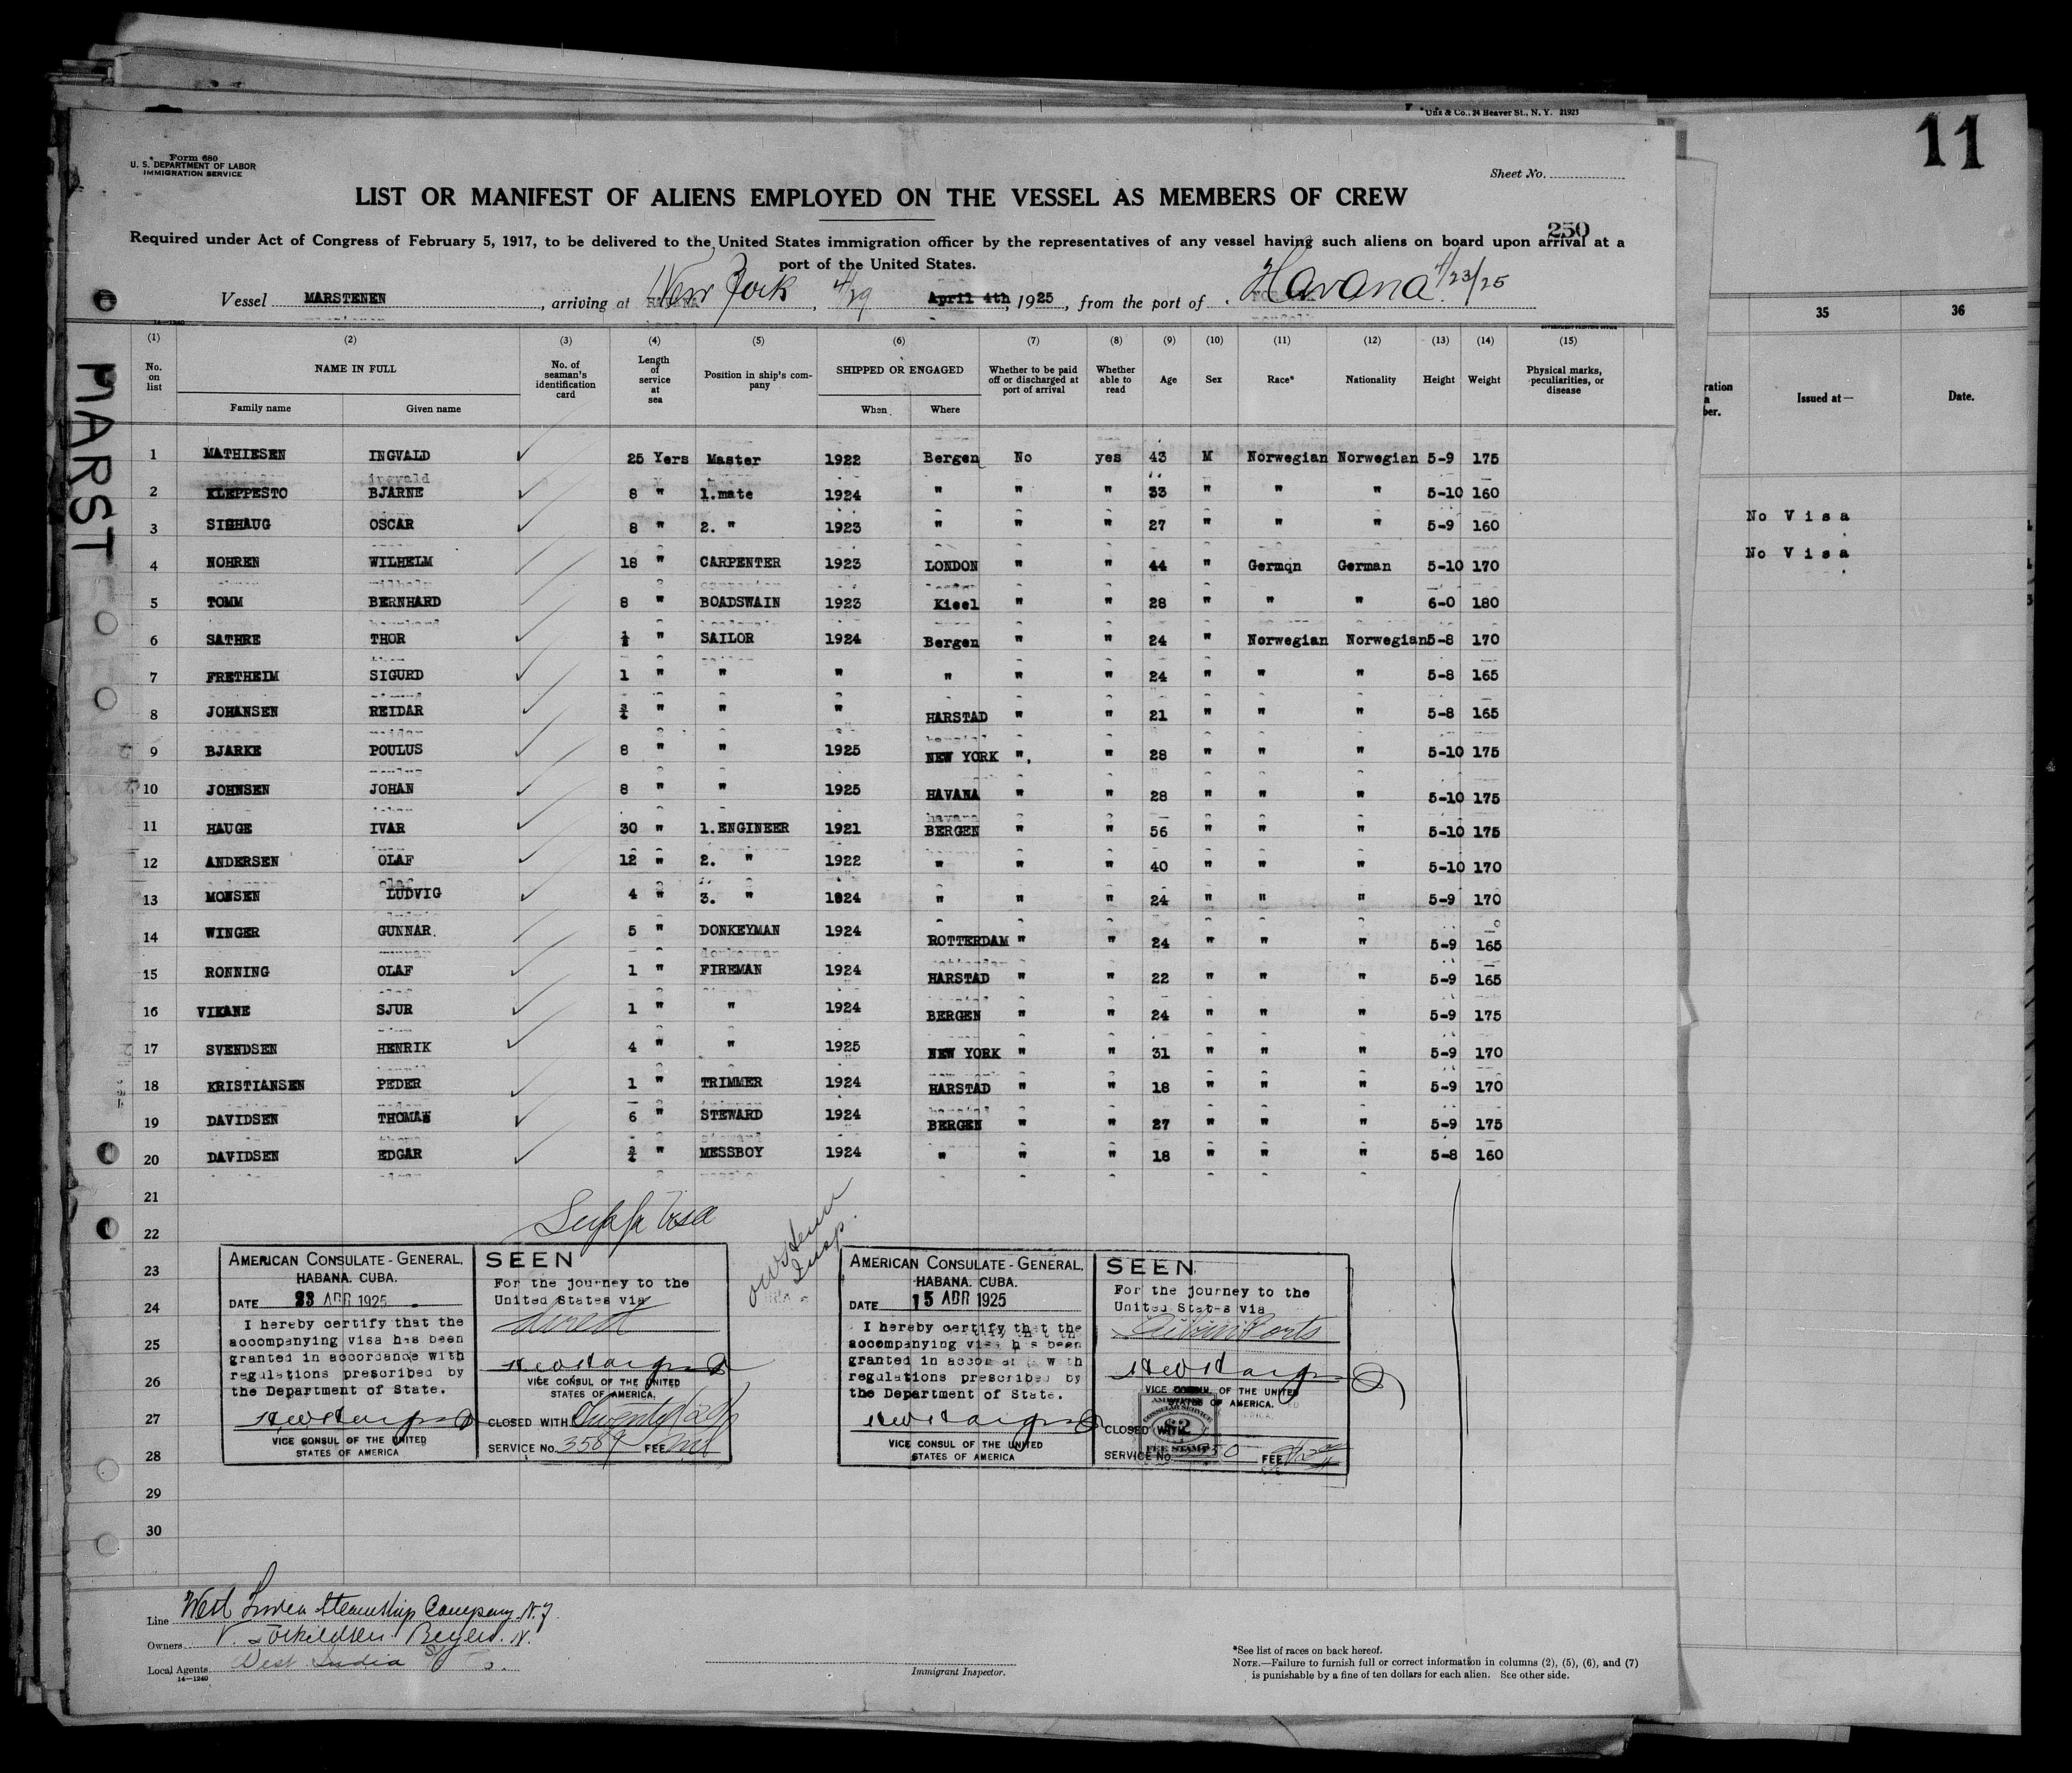 Uns & Co., 24 Beaver St., N. Y. 21923
11
Form 680
U. S. DEPARTMENT OF LABOR
IMMIGRATION SERVICE
Sheet No.
LIST OR MANIFEST OF ALIENS EMPLOYED ON THE VESSEL AS MEMBERS OF CREW
250
Required under Act of Congress of February 5, 1917, to be delivered to the United States immigration officer by the representatives of any vessel having such aliens on board upon arrival at a
port of the United States.
Vessel MARSTENEN, arriving at New York, 4/29 April 4th, 1925, from the port of Havana 4/23/25
MARST
(1) (2) (3) (4) (5) (6) (7) (8) (9) (10) (11) (12) (13) (14) (15)
No. on list NAME IN FULL No. of seaman's identification card Length of service at sea Position in ship's company SHIPPED OR ENGAGED Whether to be paid off or discharged at port of arrival Whether able to read Age Sex Race* Nationality Height Weight Physical marks, peculiarities, or disease
Family name Given name When Where
35 36
Issued at— Date.
No Visa
No Visa
1 MATHIESEN INGVALD 25 Yers Master 1922 Bergen No yes 43 M Norwegian Norwegian 5-9 175
2 KLEPPESTO BJARNE 8 " 1.mate 1924 " " " 33 " " " 5-10 160
3 OSCAR 8 " 2. " 1923 " " " 27 " " " 5-9 160
4 NOHREN WILHELM 18 " CARPENTER 1923 LONDON " " 44 " Germqn German 5-10 170
5 TOMM BERNHARD 8 " BOADSWAIN 1923 Kieel " " 28 " " " 6-0 180
6 SATHRE THOR ½ " SAILOR 1924 Bergen " " 24 " Norwegian Norwegian 5-8 170
7 FRETHEIM SIGURD 1 " " " " " " 24 " " " 5-8 165
8 JOHANSEN REIDAR ¾ " " " HARSTAD " " 21 " " " 5-8 165
9 BJARKE POULUS 8 " " 1925 NEW YORK " " 28 " " " 5-10 175
10 JOHNSEN JOHAN 8 " " 1925 HAVANA " " 28 " " " 5-10 175
11 HAUGE IVAR 30 " 1.ENGINEER 1921 BERGEN " " 56 " " " 5-10 175
12 ANDERSEN OLAF 12 " 2. " 1922 " " " 40 " " " 5-10 170
13 MONSEN LUDVIG 4 " 3. " 1924 " " " 24 " " " 5-9 170
14 WINGER GUNNAR 5 " DONKEYMAN 1924 ROTTERDAM " " 24 " " " 5-9 165
15 RONNING OLAF 1 " FIREMAN 1924 HARSTAD " " 22 " " " 5-9 165
16 VIKANE SJUR 1 " " 1924 BERGEN " " 24 " " " 5-9 175
17 SVENDSEN HENRIK 4 " " 1925 NEW YORK " " 31 " " " 5-9 170
18 KRISTIANSEN PEDER 1 " TRIMMER 1924 HARSTAD " " 18 " " " 5-9 170
19 DAVIDSEN THOMAS 6 " STEWARD 1924 BERGEN " " 27 " " " 5-9 175
20 DAVIDSEN EDGAR ¾ " MESSBOY 1924 " " " 18 " " " 5-8 160
21
22
23
24
25
26
27
28
29
30
Visa
Insp.
AMERICAN CONSULATE-GENERAL,
HABANA. CUBA.
DATE 23 ABR 1925
I hereby certify that the
accompanying visa has been
granted in accordance with
regulations prescribed by
the Department of State.
VICE CONSUL OF THE UNITED
STATES OF AMERICA
SEEN
For the journey to the
United States via
direct
VICE CONSUL OF THE UNITED
STATES OF AMERICA.
CLOSED WITH
SERVICE No. 3589 FEE nil
AMERICAN CONSULATE-GENERAL,
HABANA. CUBA.
DATE 15 ABR 1925
I hereby certify that the
accompanying visa has been
granted in accordance with
regulations prescribed by
the Department of State.
VICE CONSUL OF THE UNITED
STATES OF AMERICA
SEEN
For the journey to the
United States via
Cuban Ports
VICE CONSUL OF THE UNITED
STATES OF AMERICA.
CLOSED WITH
AMERICAN CONSULAR SERVICE
$2
FEE STAMP
SERVICE No. FEE
Line West India Steamship Company N.Y.
Owners V. Torkildsen Bergen. N.
Local Agents West India S/S Co.
14—1240
Immigrant Inspector.
*See list of races on back hereof.
NOTE.—Failure to furnish full or correct information in columns (2), (5), (6), and (7)
is punishable by a fine of ten dollars for each alien. See other side.